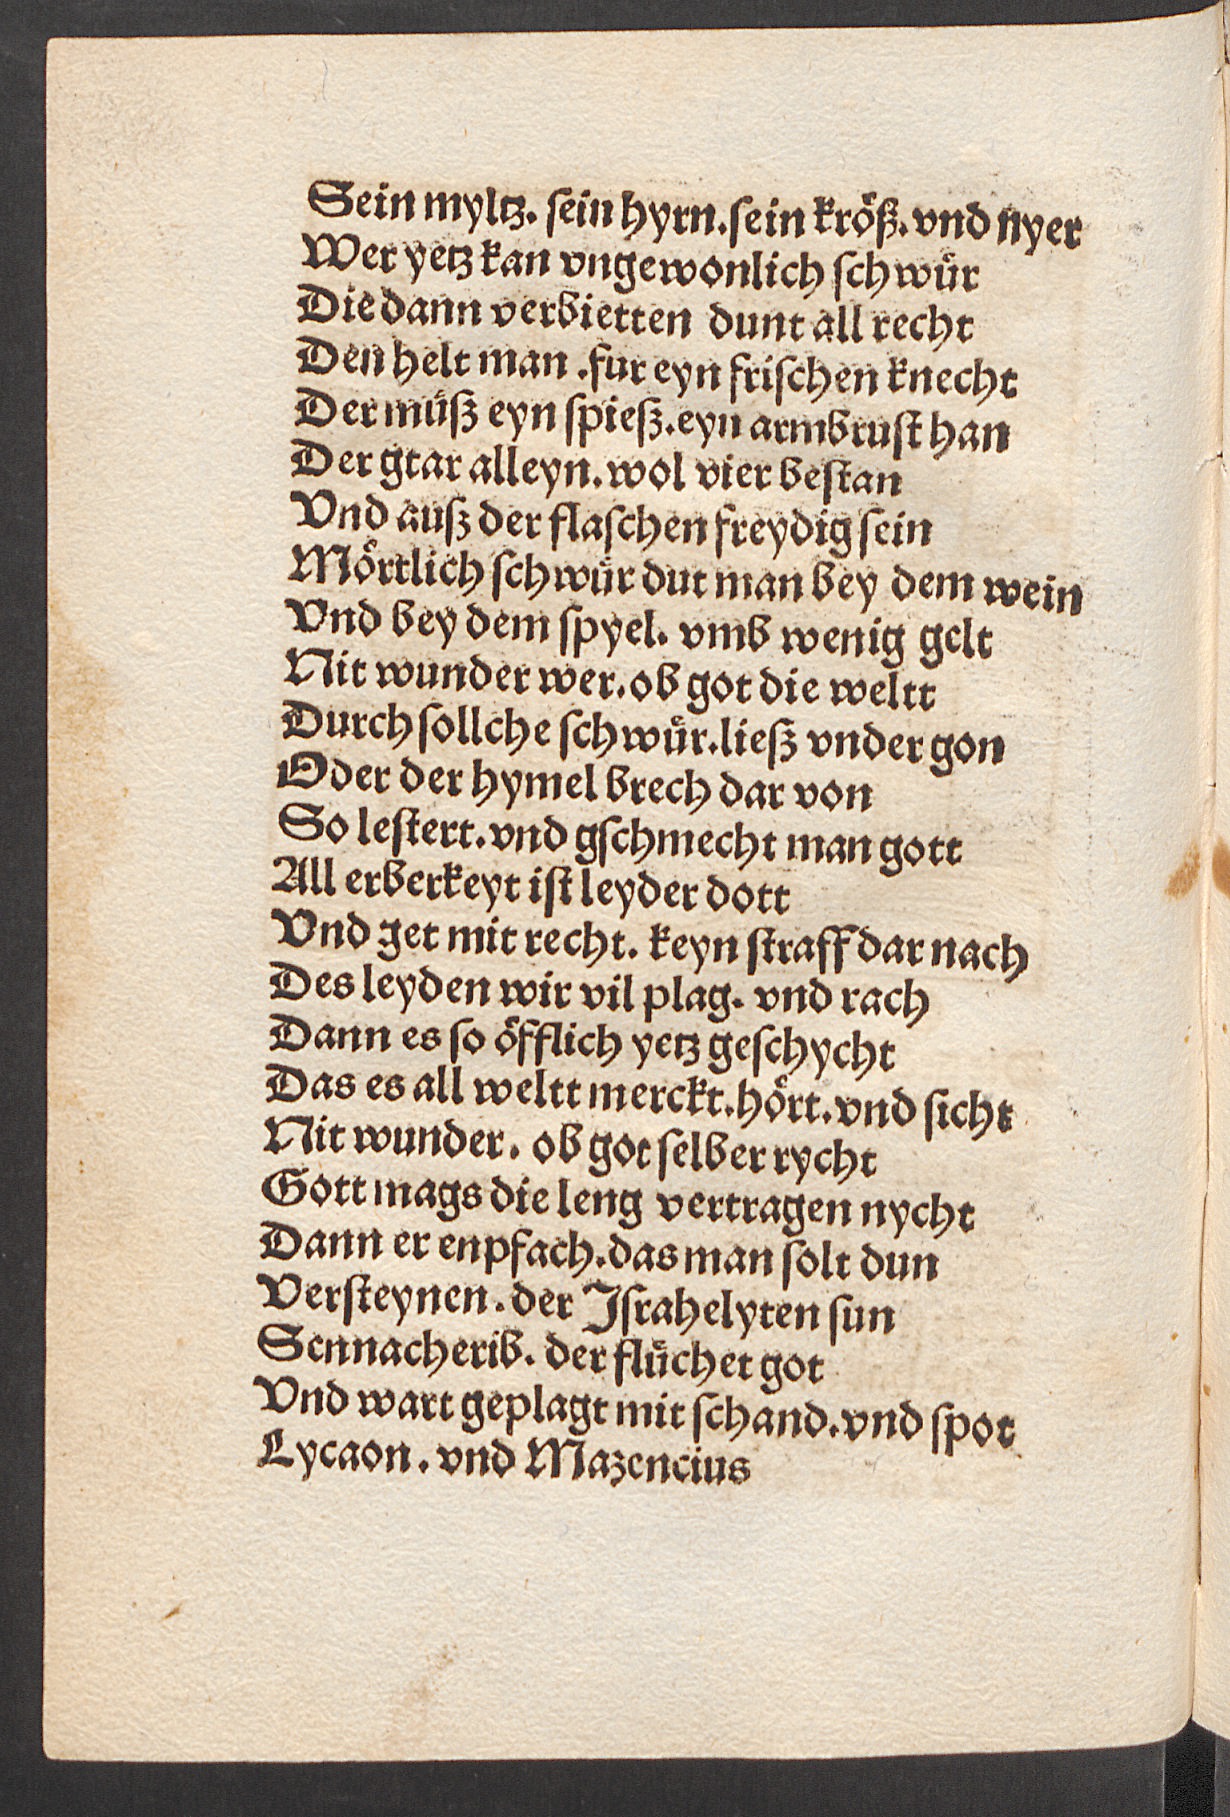 Sein myltz. sein hyrn. sein kröß. vnd nyer
Wer yetz kan vngewonlich schwuͤr
Die dann verbietten dunt all recht
Den helt man .fur eyn frischen knecht
Der muͤß eyn spieß. eyn armbrust han
Der gtar alleyn. wol vier bestan
Vnd auß der flaschen freydig sein
Mörtlich schwuͤr dut man bey dem wein
Vnd bey dem spyel. vmb wenig gelt
Nit wunder wer. ob got die weltt
Durch sollche schwuͤr. ließ vnder gon
Oder der hymel brech dar von
So lestert. vnd gschmecht man gott
All erberkeyt ist leyder dott
Vnd get mit recht. keyn straff dar nach
Des leyden wir vil plag. vnd rach
Dann es so öfflich yetz geschycht
Das es all weltt merckt. hört. vnd sicht
Nit wunder. ob got selber rycht
Gott mags die leng vertragen nycht
Dann er enpfach. das man solt dun
Versteynen. der Israhelyten sun
Sennacherib. der fluͤchet got
Vnd wart geplagt mit schand. vnd spot
Lycaon. vnd Mazencius